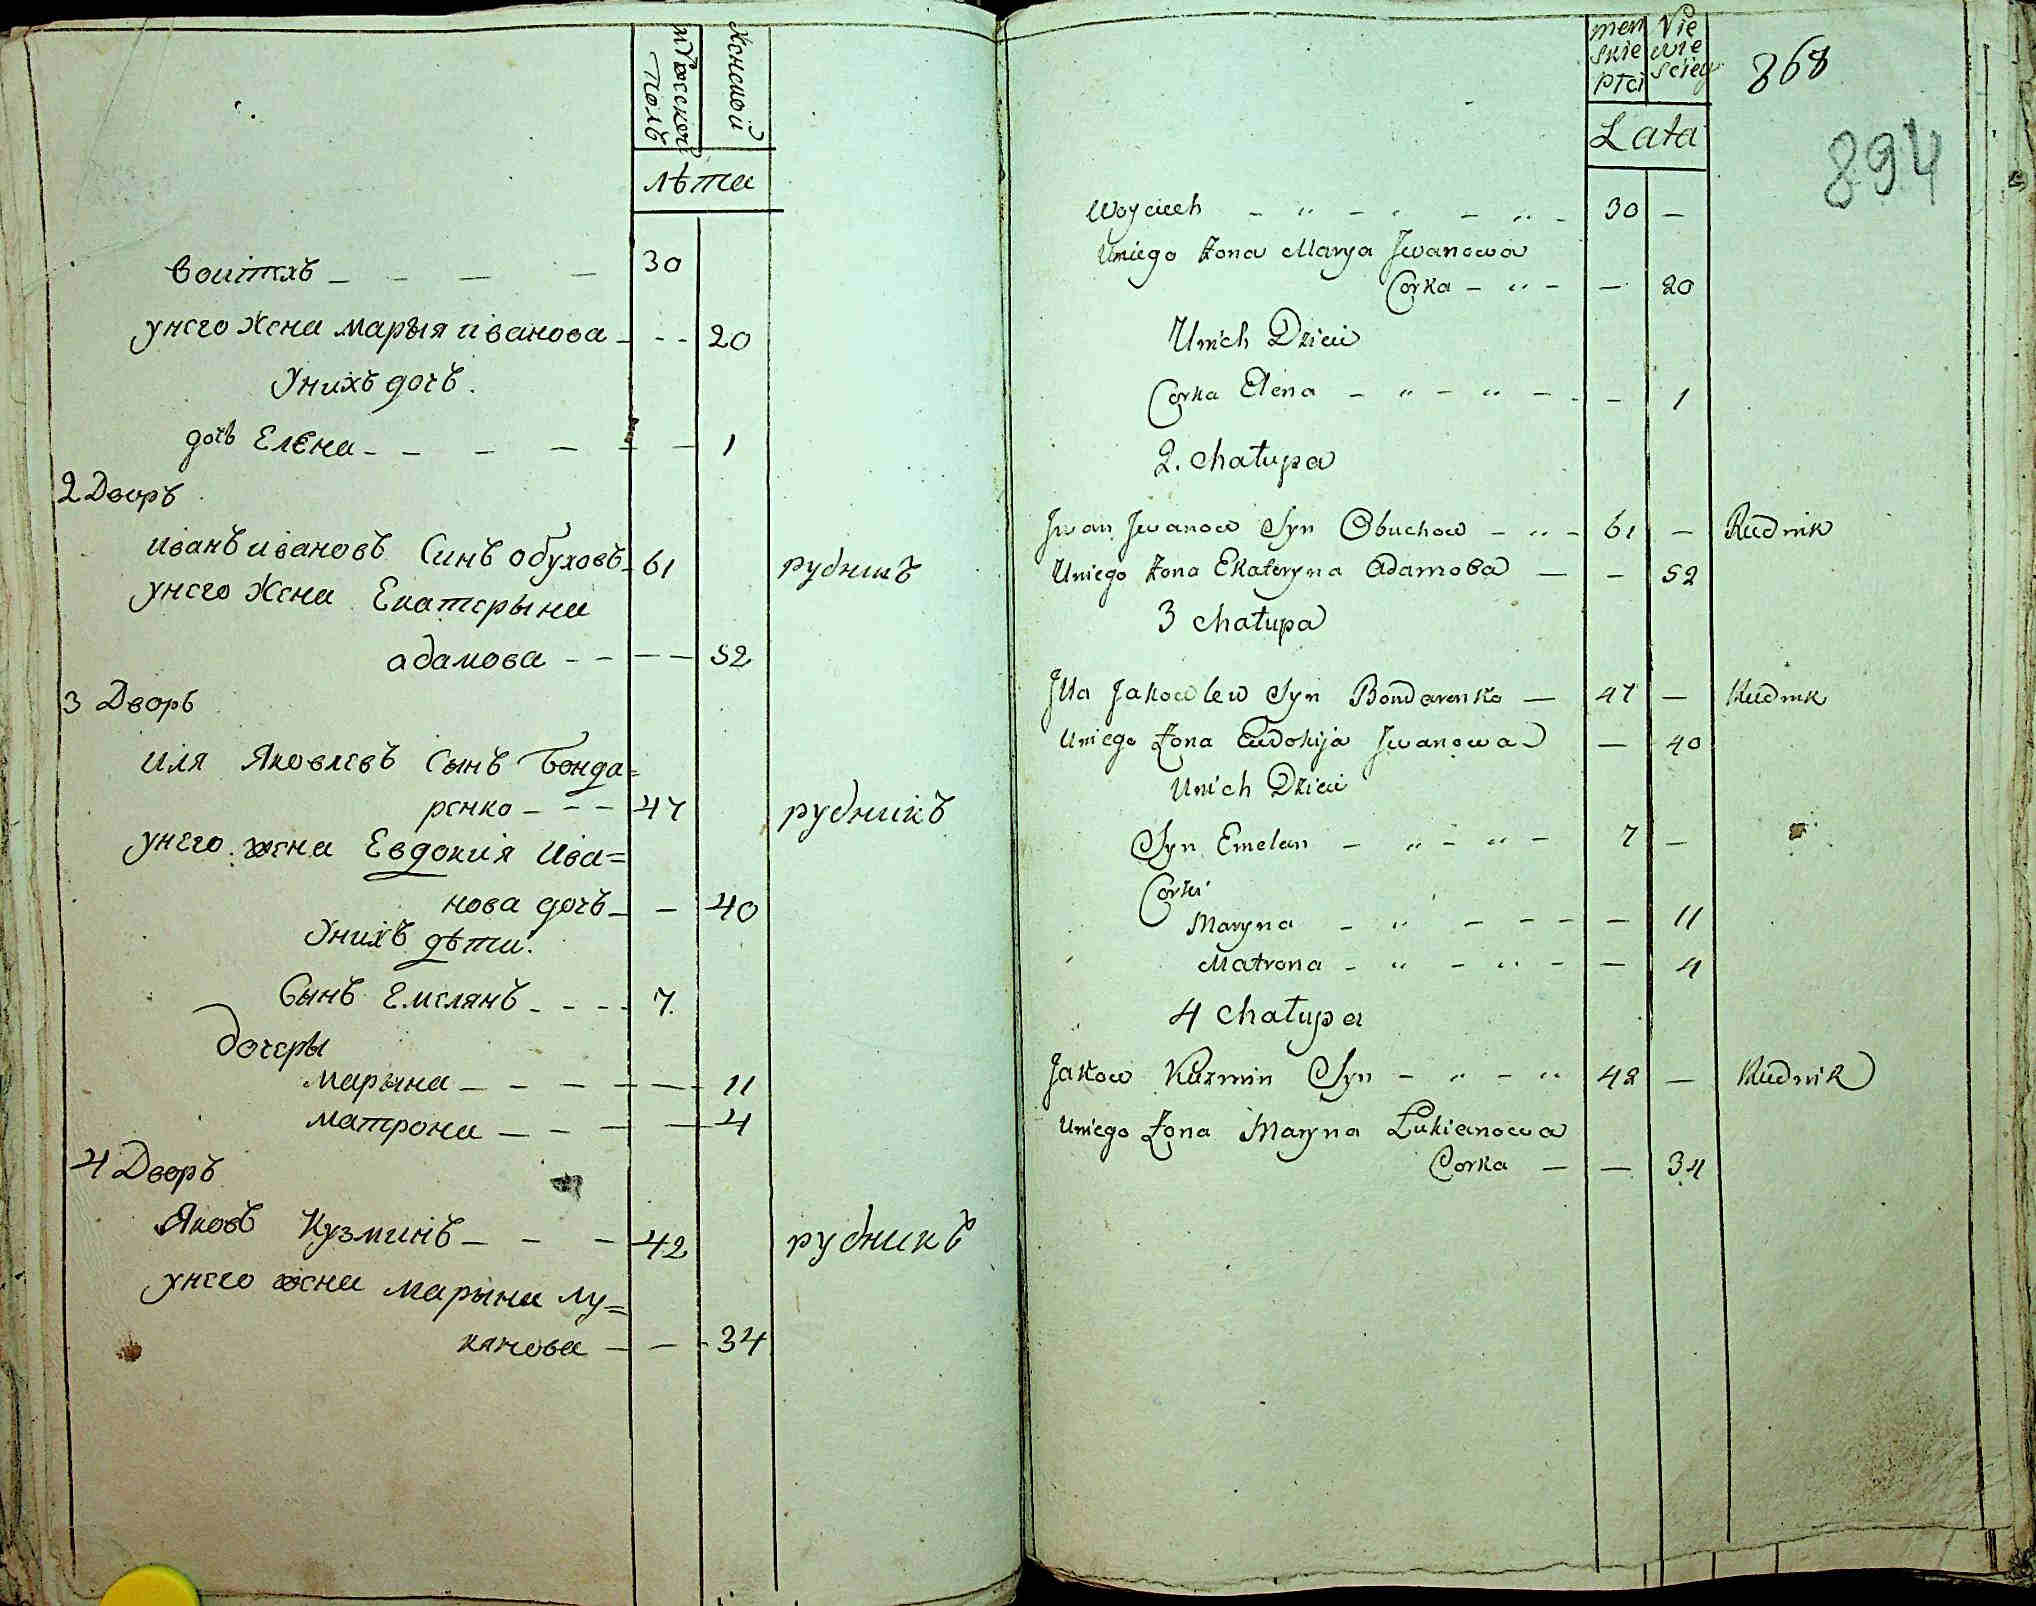 мужескої полъ
женской
лѣта
Воитехъ — — — — 30
унего жена марыя иванова — - - 20
Унихъ дочъ.
дочъ Елена — — — — — — 1
2 Дворъ
иванъ ивановъ Синъ обуховъ 61 рудникъ
унего жена Екатерына
адамова - - — — 52
3 Дворъ
иля Яковлевъ Сынъ Бонда=
ренко — — — 47 рудникъ
унего жена Евдокия Ива=
нова дочъ — — 40
Унихъ дѣти.
Сынъ Емелянъ - - - - 7.
дочеры
марына — — — — — 11
матрона — — — — 4
4 Дворъ
Яковъ Кузминъ — — — 42 рудникъ
унего жена марына лу=
кянова — — - 34
men
skie
płci
Nie
wie
sciey
868
Lata
894
Woyciech — " — " — " — 30 —
Uniego żona Marya Jwanowa
Corka — " — — 20
Unich Dzieci
Corka Elena — " — " — - — 1
2. chałupa
Jwan Jwanow Syn Obuchow — " — 61 — Rudnik
Uniego żona Ekateryna Adamowa — — 52
3 chałupa
Jlla Jakowlew Syn Bondarenko — 47 — Rudnik
Uniego żona Eudokija Jwanowa — 40
Unich Dzieci
Syn Emelan — " — " — 7 —
Corki
Maryna — " — — — — 11
Matrona — " — " — — 4
4 chałupa
Jakow Kuzmin Syn — " — " 42 — Rudnik
Uniego żona Maryna Łukianowa
Corka — — 34